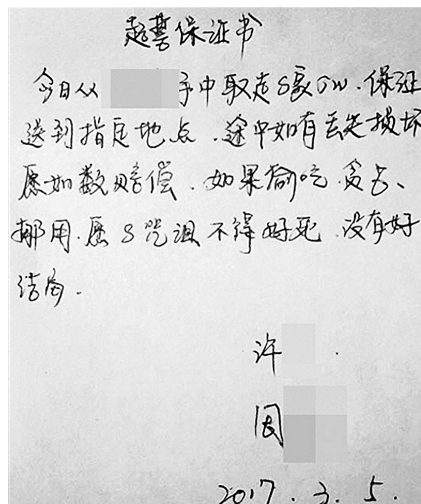 起誓保证书
今日从 手中取走S家CW.保证
送到指定地点.途中如有丢失损坏
愿如数赔偿.如果偷吃.贪占、
挪用.愿S咒诅不得好死.没有好
结局.
许 .
周
2017.3.5.